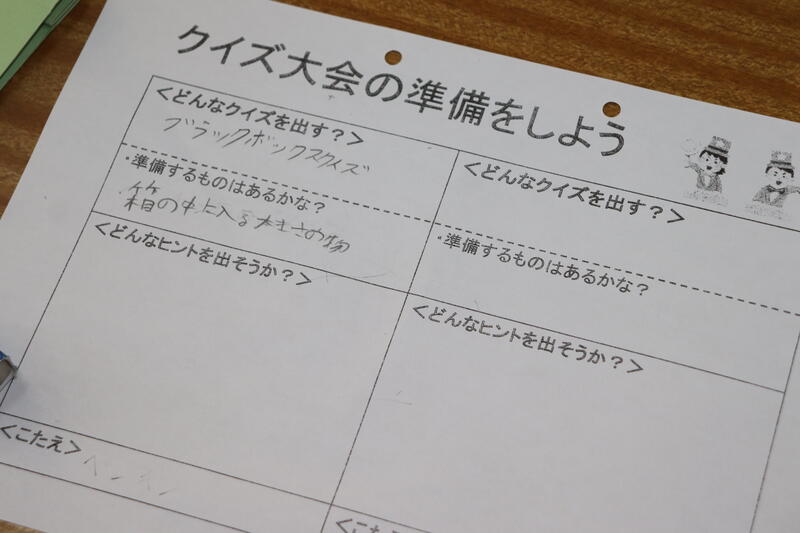 クイズ大会の準備をしよう
<どんなクイズを出す?>
ブラックボックスクイズ
・準備するものはあるかな?
箱の中に入る大きさの物
<どんなヒントを出そうか?>
<こたえ>
<どんなクイズを出す?>
・準備するものはあるかな?
<どんなヒントを出そうか?>